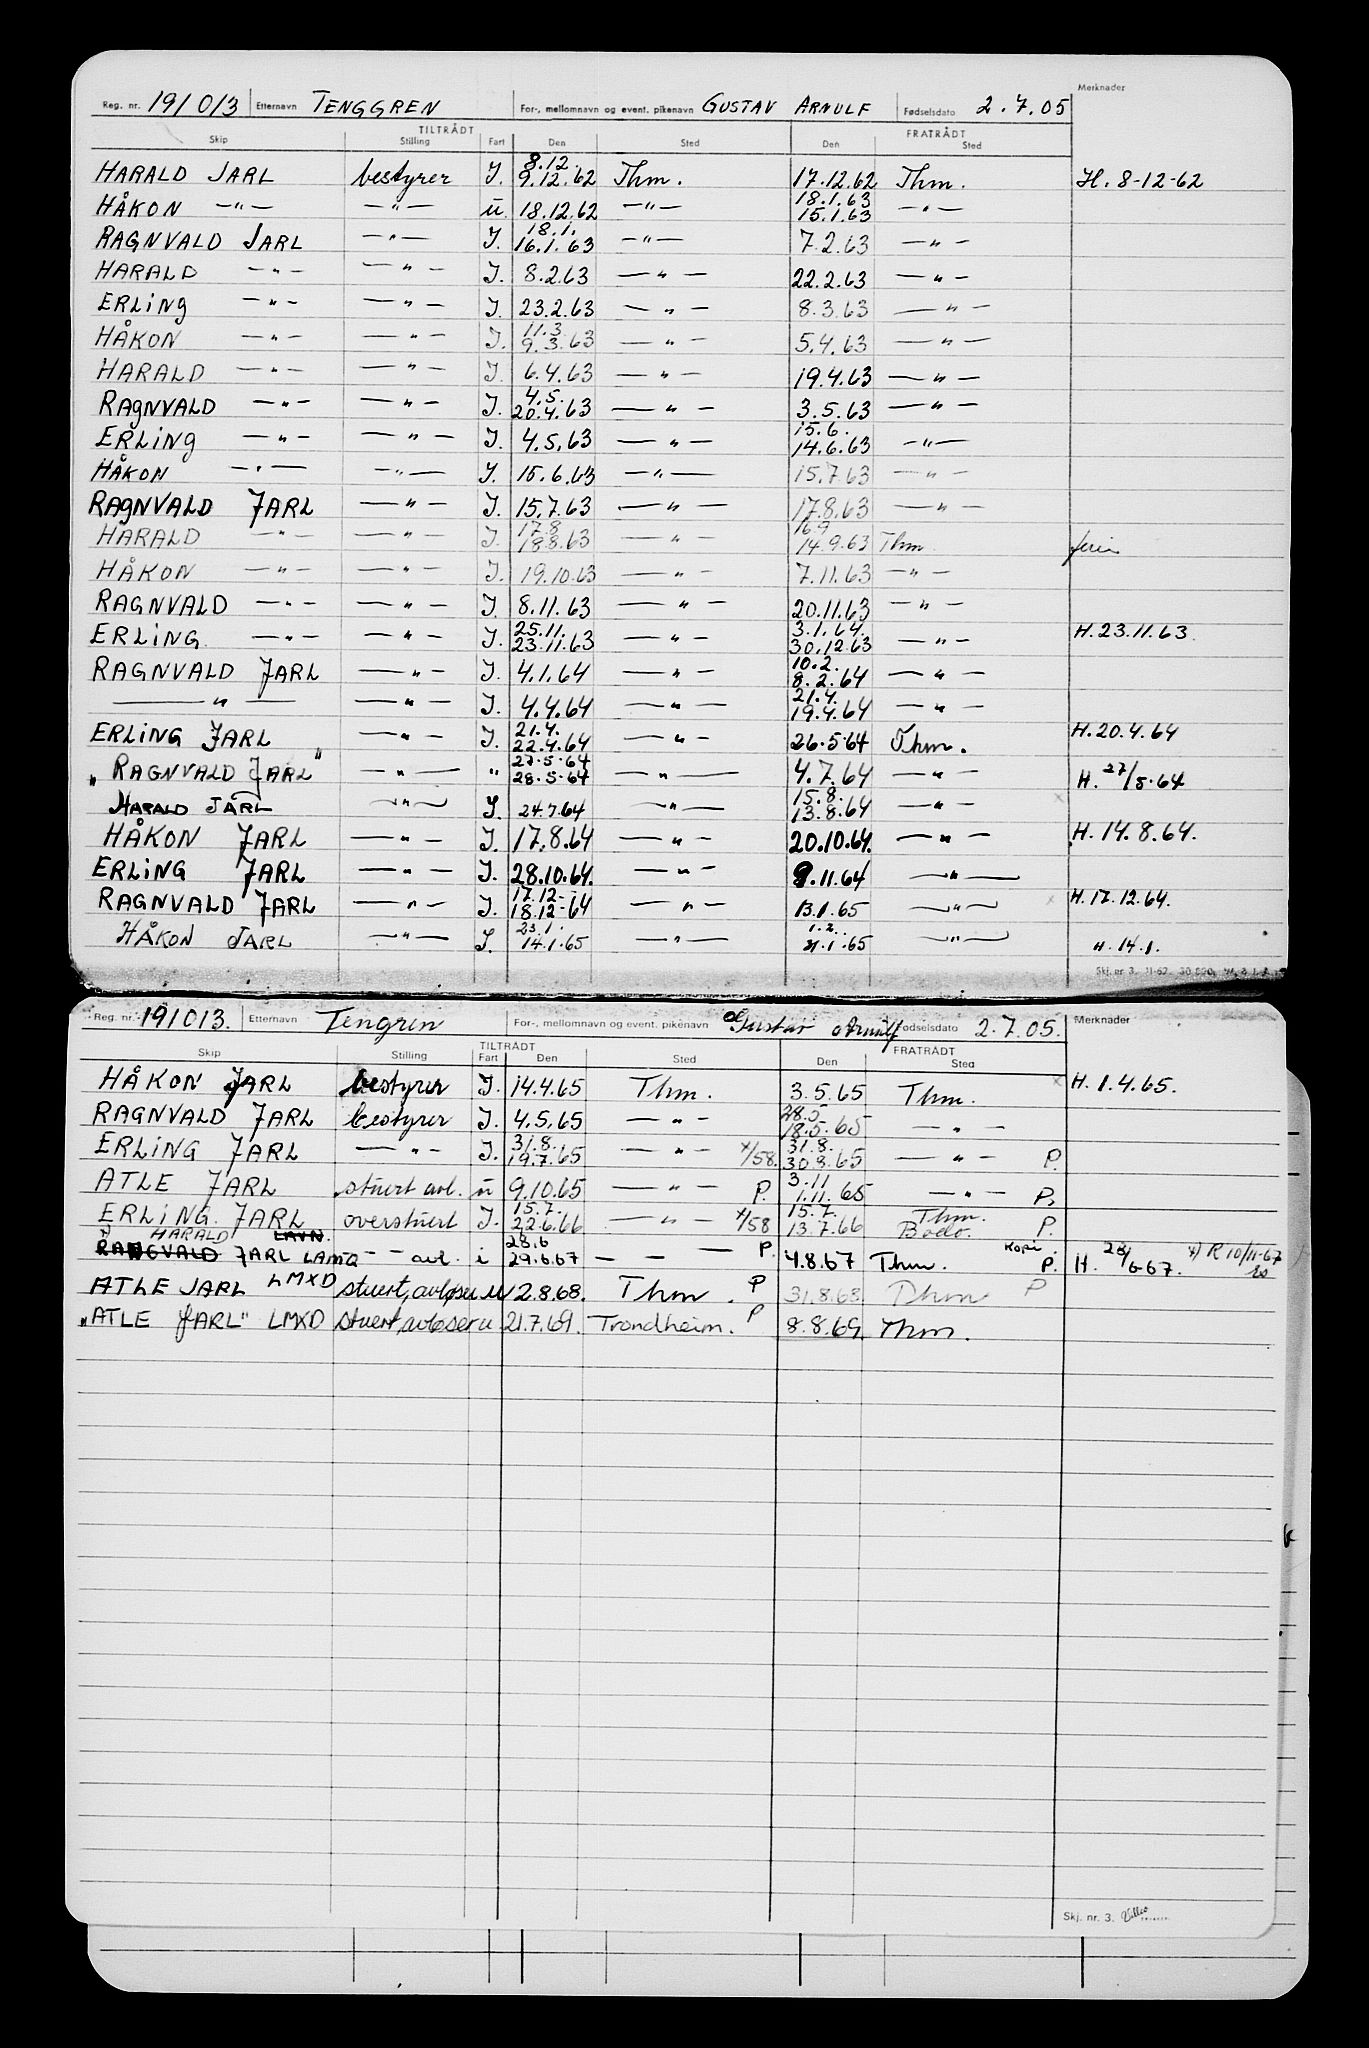 Merknader
Reg. nr. 191013 Etternavn TENGGREN For-, mellomnavn og event. pikenavn GUSTAV ARNULF Fødselsdato 2.7.05
TILTRÅDT FRATRÅDT
Skip Stilling Fart Den Sted Den Sted
HARALD JARL bestyrer J. 8.12. 9.12.62 Thm. 17.12.62 Thm. H. 8-12-62
HÅKON —"— —"— u. 18.12.62 —"— 18.1.63 15.1.63 —"—
RAGNVALD JARL —"— J. 18.1. 16.1.63 —"— 7.2.63 —"—
HARALD —"— —"— J. 8.2.63 —"— 22.2.63 —"—
ERLING —"— —"— J. 23.2.63 —"— 8.3.63 —"—
HÅKON —"— —"— J. 11.3. 9.3.63 —"— 5.4.63 —"—
HARALD —"— —"— J. 6.4.63 —"— 19.4.63 —"—
RAGNVALD —"— —"— J. 4.5. 20.4.63 —"— 3.5.63 —"—
ERLING —"— —"— J. 4.5.63 —"— 15.6. 14.6.63 —"—
HÅKON —"— —"— J. 15.6.63 —"— 15.7.63 —"—
RAGNVALD JARL —"— J. 15.7.63 —"— 17.8.63 —"—
HARALD —"— —"— J. 17.8 18.8.63 —"— 16.9 14.9.63 Thm. ferie
HÅKON —"— —"— J. 19.10.63 —"— 7.11.63 —"—
RAGNVALD —"— —"— J. 8.11.63 —"— 20.11.63 —"—
ERLING. —"— —"— J. 25.11. 23.11.63 —"— 3.1.64. 30.12.63 —"— H. 23.11.63.
RAGNVALD JARL —"— J. 4.1.64 —"— 10.2. 8.2.64 —"—
—"— —"— J. 4.4.64 —"— 21.4. 19.4.64 —"—
ERLING JARL —"— J. 21.4. 22.4.64 —"— 26.5.64 Thm. H. 20.4.64
„RAGNVALD JARL" —"— " 27.5.64 28.5.64 —"— 4.7.64 —"— H. 27/5.64
HARALD JARL —"— J. 24.7.64 —"— 15.8. 13.8.64 —"—
HÅKON JARL —"— J. 17.8.64 —"— 20.10.64. —"— H. 14.8.64.
ERLING JARL —"— J. 28.10.64. —"— 9.11.64 —"—
RAGNVALD JARL —"— J. 17.12- 18.12-64 —"— 13.1.65 —"— H. 17.12.64.
HÅKON JARL —"— J. 23.1. 14.1.65 —"— 1.2. 21.1.65 —"— H. 14.1.
Reg. nr. 191013. Etternavn Tengrin For-, mellomnavn og event. pikenavn Gustav Arnulf Fødselsdato 2.7.05. Merknader
TILTRÅDT FRATRÅDT
Skip Stilling Fart Den Sted Den Sted
HÅKON JARL bestyrer J. 14.4.65 Thm. 3.5.65 Thm. x H. 1.4.65.
RAGNVALD JARL bestyrer J. 4.5.65 —"— 28.5 18.5.65 —"—
ERLING JARL —"— J. 31.8. 19.7.65 —"— x/58. 31.8. 30.8.65 —"— P.
ATLE JARL stuert avl. u 9.10.65 —"— P. 3.11 1.11.65 —"— P.
ERLING. JARL overstuert J. 15.7. 22.6.66 —"— x/58 15.7. 13.7.66 Thm. Bodø. P.
HARALD LAVN.
RANGVALD JARL LAMQ —"— avl. i 28.6 29.6.67 — — P. 4.8.67 Thm. Kopi P. H. 28/6-67. x) R 10/11-67
ATLE JARL LMXD stuert, avløser u 2.8.68. Thm. P 31.8.68 Thm P
„ATLE JARL" LMXD stuert, avløser u 21.7.69. Trondheim. P 8.8.69 Thm.
Skj. nr. 3.